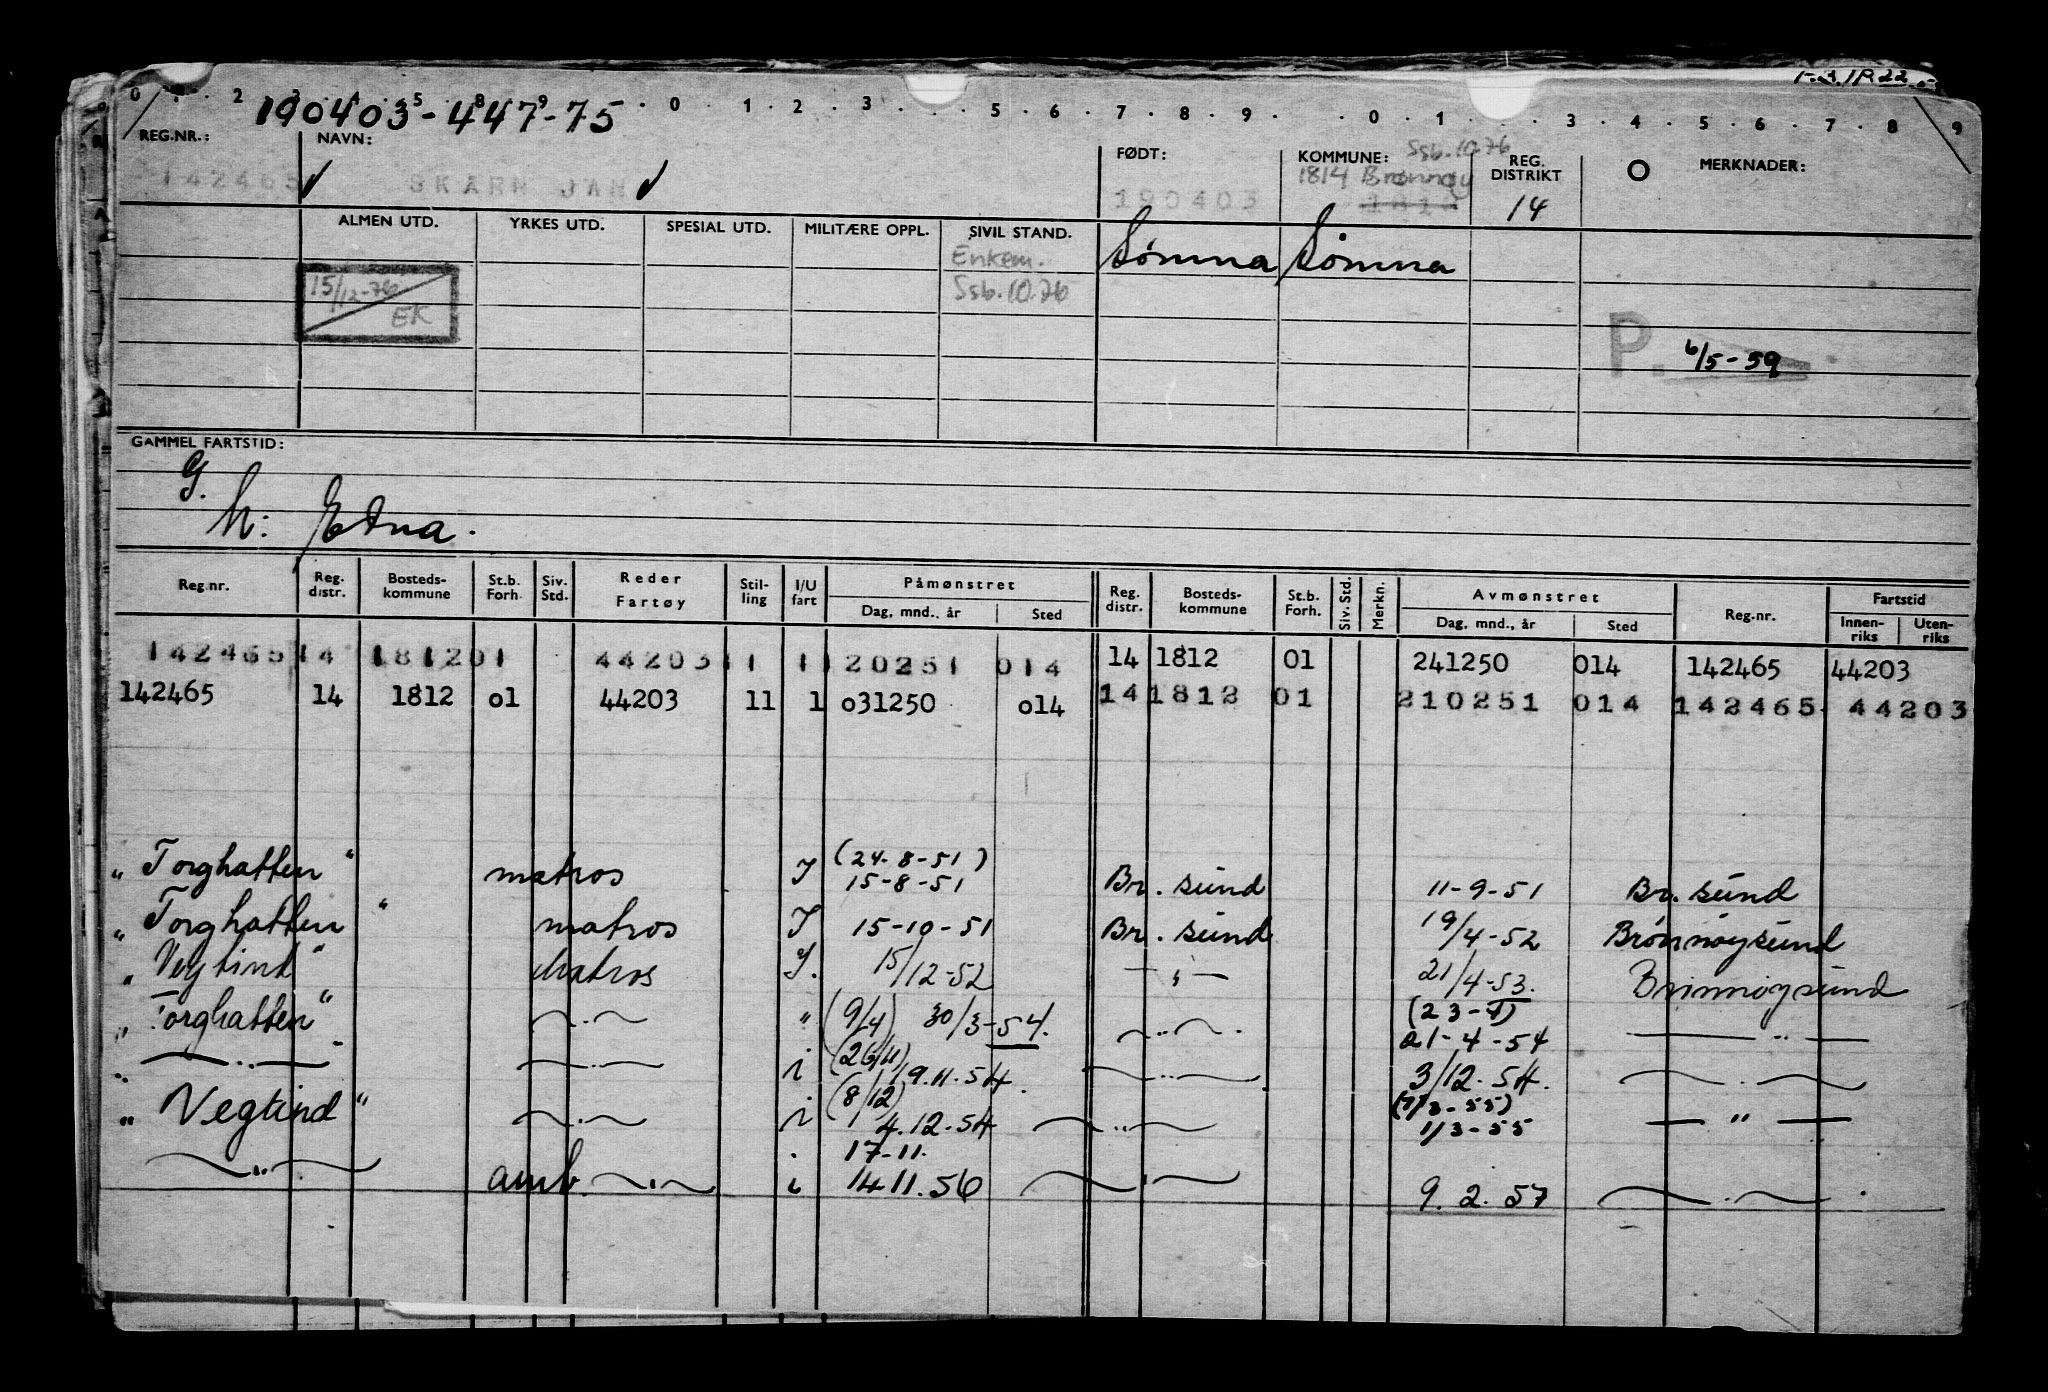 190403-447-75
REG.NR.: NAVN: FØDT: KOMMUNE: Ssb. 10.76 REG. DISTRIKT O MERKNADER:
142465 SKARN JAN 190403 1814 Brønnøy 14
ALMEN UTD. YRKES UTD. SPESIAL UTD. MILITÆRE OPPL. SIVIL STAND.
Enkem. Sømna Sømna
15/12-76 EK Ssb. 10.76
P. 6/5-59
GAMMEL FARTSTID:
G.
h: Edna.
Reg.nr. Reg. distr. Bosteds-kommune St.b. Forh. Siv. Std. Reder Fartøy Stil-ling I/U fart Påmønstret Dag, mnd., år Sted Reg. distr. Bosteds-kommune St.b. Forh. Siv. Std. Merkn. Avmønstret Dag, mnd., år Sted Reg.nr. Fartstid Innen-riks Uten-riks
142465 14 1812 01 44203 11 1 120251 014 14 1812 01 241250 014 142465 44203
142465 14 1812 o1 44203 11 1 o31250 o14 14 1812 01 210251 014 142465 44203
(24-8-51)
"Torghatten" matros I 15-8-51 Br. sund 11-9-51 Br. sund
"Torghatten" matros I 15-10-51 Br. sund 19/4-52 Brønnøysund
"Vegtind" Matros I. 15/12-52 — " — 21/4-53. Brønnøysund
"Torghatten" — " — " (9/4) 30/3-54. — " — (23-4) 21-4-54 — " —
— " — — " — i (26/11) 19.11.54. — " — 3/12.54. — " —
"Vegtind" — " — i (8/12) 4.12.54 — " — (7/3-55) 1/3-55 — " —
17-11.
— " — amb. — " — i 14.11.56 — " — 9.2.57 — " —